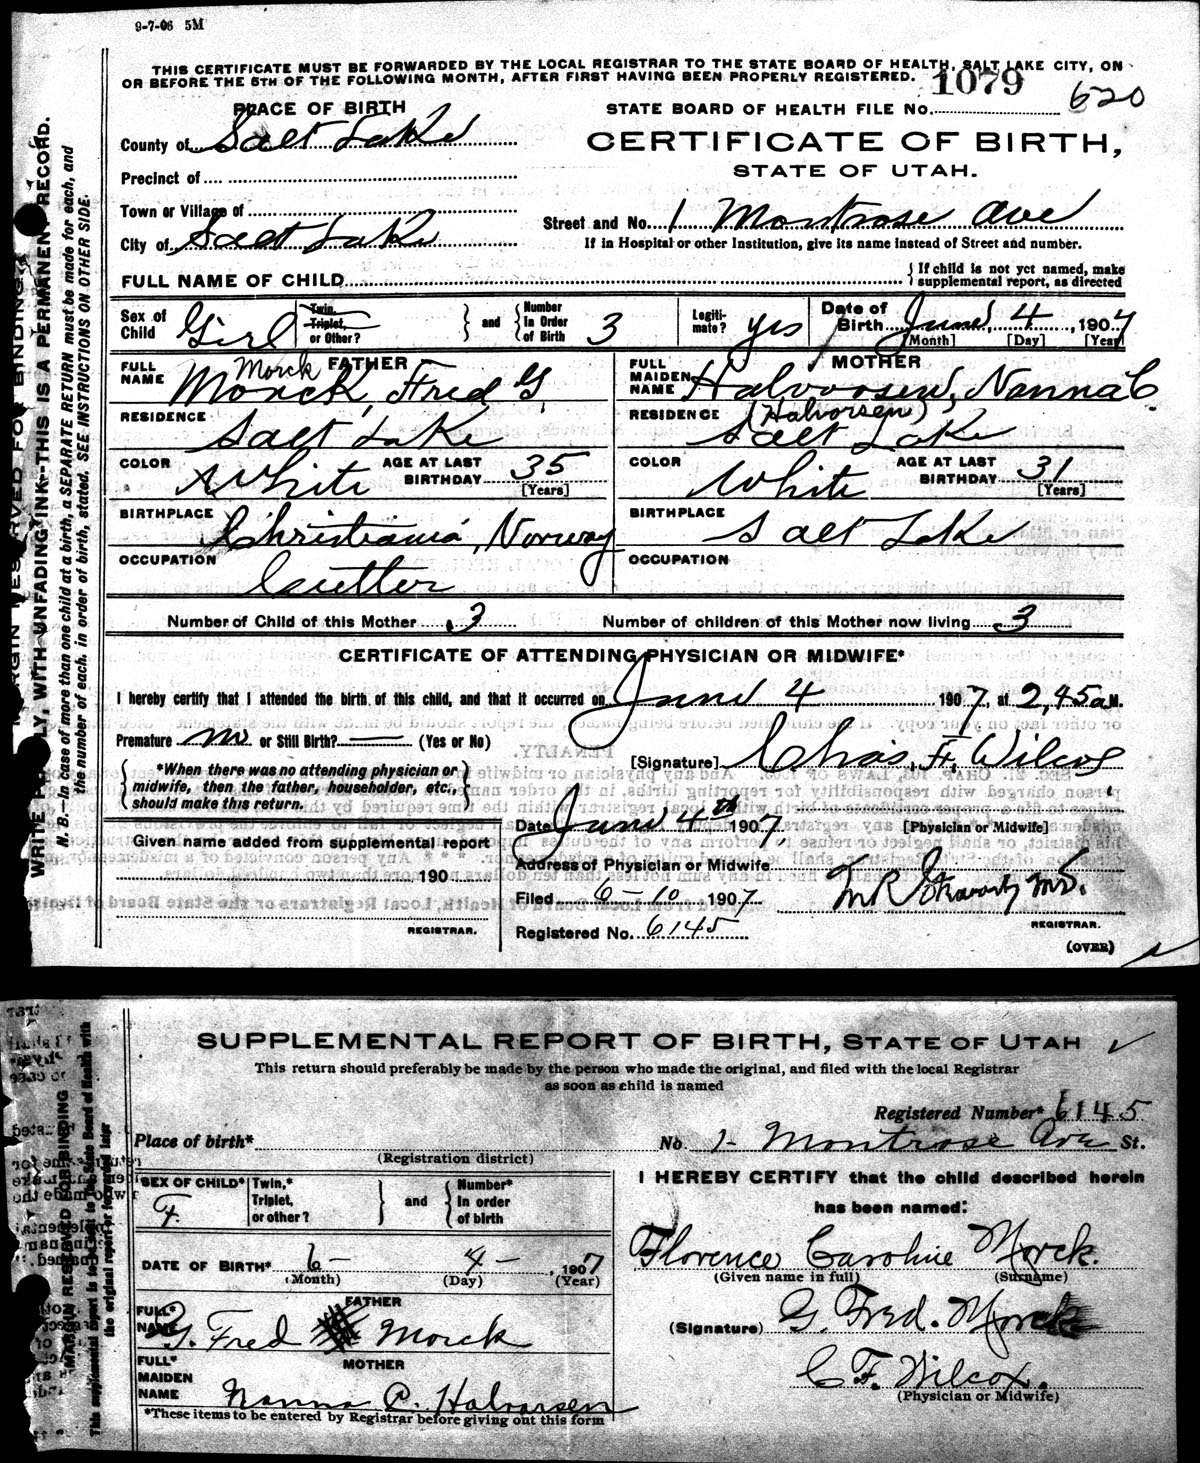 9-7-06 5M
THIS CERTIFICATE MUST BE FORWARDED BY THE LOCAL REGISTRAR TO THE STATE BOARD OF HEALTH, SALT LAKE CITY, ON
OR BEFORE THE 5TH OF THE FOLLOWING MONTH, AFTER FIRST HAVING BEEN PROPERLY REGISTERED.
PLACE OF BIRTH
STATE BOARD OF HEALTH FILE No. 1079 620
County of Salt Lake
CERTIFICATE OF BIRTH,
STATE OF UTAH.
Precinct of
Town or Village of
Street and No. 1 Montrose Ave
City of Salt Lake
If in Hospital or other Institution, give its name instead of Street and number.
FULL NAME OF CHILD
If child is not yet named, make
supplemental report, as directed
Sex of Child Girl
Twin, Triplet, or Other?
and
Number in Order of Birth 3
Legitimate? yes
Date of Birth June 4, 1907
[Month] [Day] [Year]
FATHER
MOTHER
Morck
FULL NAME Morck, Fred G.
FULL MAIDEN NAME Halvorsen, Nanna C.
(Halvorsen)
RESIDENCE Salt Lake
RESIDENCE Salt Lake
COLOR White AGE AT LAST BIRTHDAY 35 [Years]
COLOR White AGE AT LAST BIRTHDAY 31 [Years]
BIRTHPLACE Christiania, Norway
BIRTHPLACE Salt Lake
OCCUPATION Cutter
OCCUPATION
Number of Child of this Mother 3 Number of children of this Mother now living 3
CERTIFICATE OF ATTENDING PHYSICIAN OR MIDWIFE*
I hereby certify that I attended the birth of this child, and that it occurred on June 4 1907, at 2,45 a M.
Premature no or Still Birth? — (Yes or No)
[Signature] Chas. F. Wilcox
*When there was no attending physician or
midwife, then the father, householder, etc.,
should make this return.
Date June 4th 1907,
[Physician or Midwife]
Given name added from supplemental report
Address of Physician or Midwife
190
Filed 6-10 1907
REGISTRAR.
REGISTRAR.
Registered No. 6145
(OVER)
MARGIN RESERVED FOR BINDING.
WRITE PLAINLY, WITH UNFADING INK—THIS IS A PERMANENT RECORD.
N. B.—In case of more than one child at a birth, a SEPARATE RETURN must be made for each, and
the number of each, in order of birth, stated. SEE INSTRUCTIONS ON OTHER SIDE.
SUPPLEMENTAL REPORT OF BIRTH, STATE OF UTAH
This return should preferably be made by the person who made the original, and filed with the local Registrar
as soon as child is named
Registered Number* 6145
Place of birth* No. 1- Montrose Ave St.
(Registration district)
I HEREBY CERTIFY that the child described herein
has been named:
SEX OF CHILD* F.
Twin,* Triplet, or other?
and
Number* In order of birth
Florence Caroline Morck.
(Given name in full) (Surname)
DATE OF BIRTH* 6- 4- , 1907
(Month) (Day) (Year)
FATHER
FULL* NAME G. Fred Morck
(Signature) G. Fred. Morck
MOTHER
FULL* MAIDEN NAME Nanna C. Halvorsen
C F. Wilcox.
(Physician or Midwife)
*These items to be entered by Registrar before giving out this form
MARGIN RESERVED FOR BINDING
This supplemental report is to be sent to the State Board of Health with
the original report or forwarded later